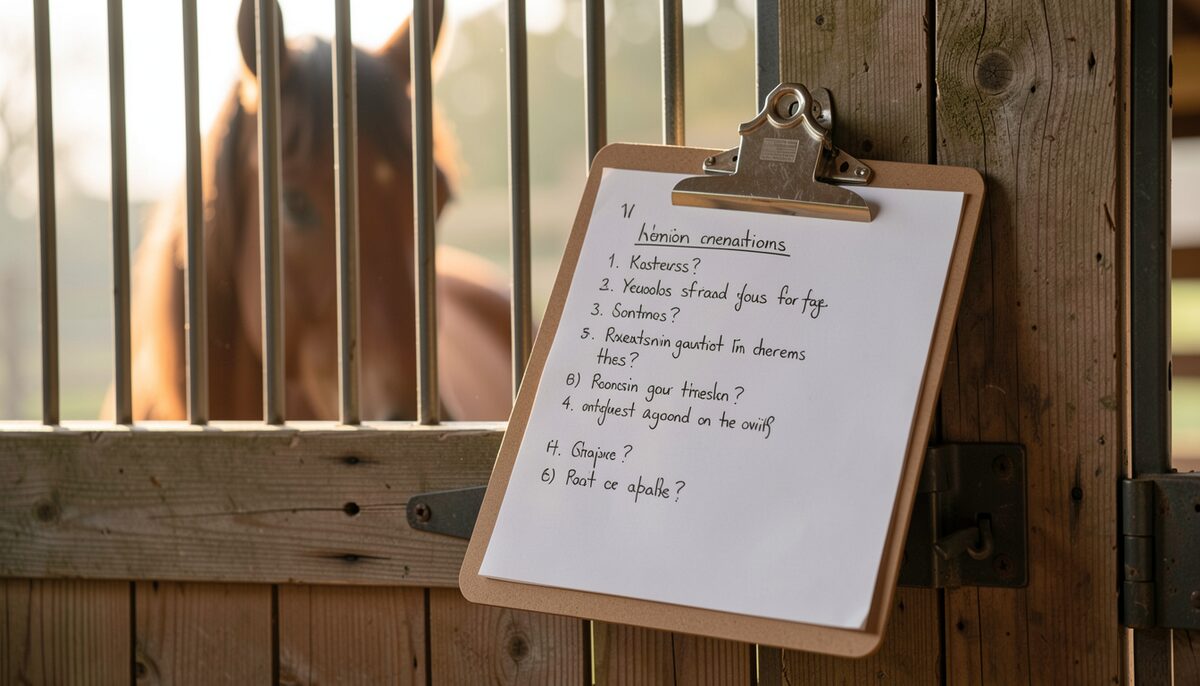 1/
hémion cnenations
1. Kosterss?
3. Yeuoolos sfraad yous for fąę
3. Sontmos?
5. Rxeatsnin gautiot I'n dherems
thes?
6) Rooncsin gour triesken?
4. ontgluest agoond on the
H. Ghajxe?
6) Roat ce apalke?